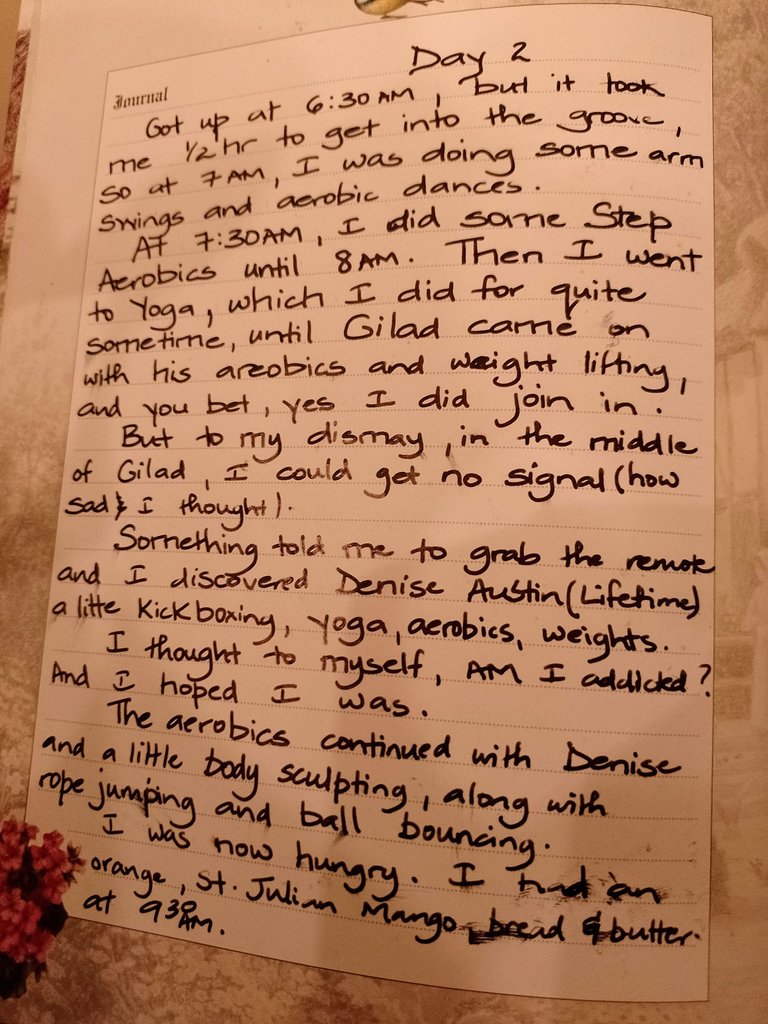 Day 2
Journal
Got up at 6:30 AM, but it took
me 1/2 hr to get into the groove,
so at 7 AM, I was doing some arm
swings and aerobic dances.
At 7:30AM, I did some Step
Aerobics until 8 AM. Then I went
to Yoga, which I did for quite
sometime, until Gilad came on
with his areobics and weight lifting,
and you bet, yes I did join in.
But to my dismay, in the middle
of Gilad, I could get no signal (how
sad I thought).
Something told me to grab the remote
and I discovered Denise Austin (Lifetime)
a litte Kickboxing, yoga, aerobics, weights.
I thought to myself, AM I addicted?
And I hoped I was.
The aerobics continued with Denise
and a little body sculpting, along with
rope jumping and ball bouncing.
I was now hungry. I had an
orange, St. Julian Mango, bread & butter.
at 930 AM.